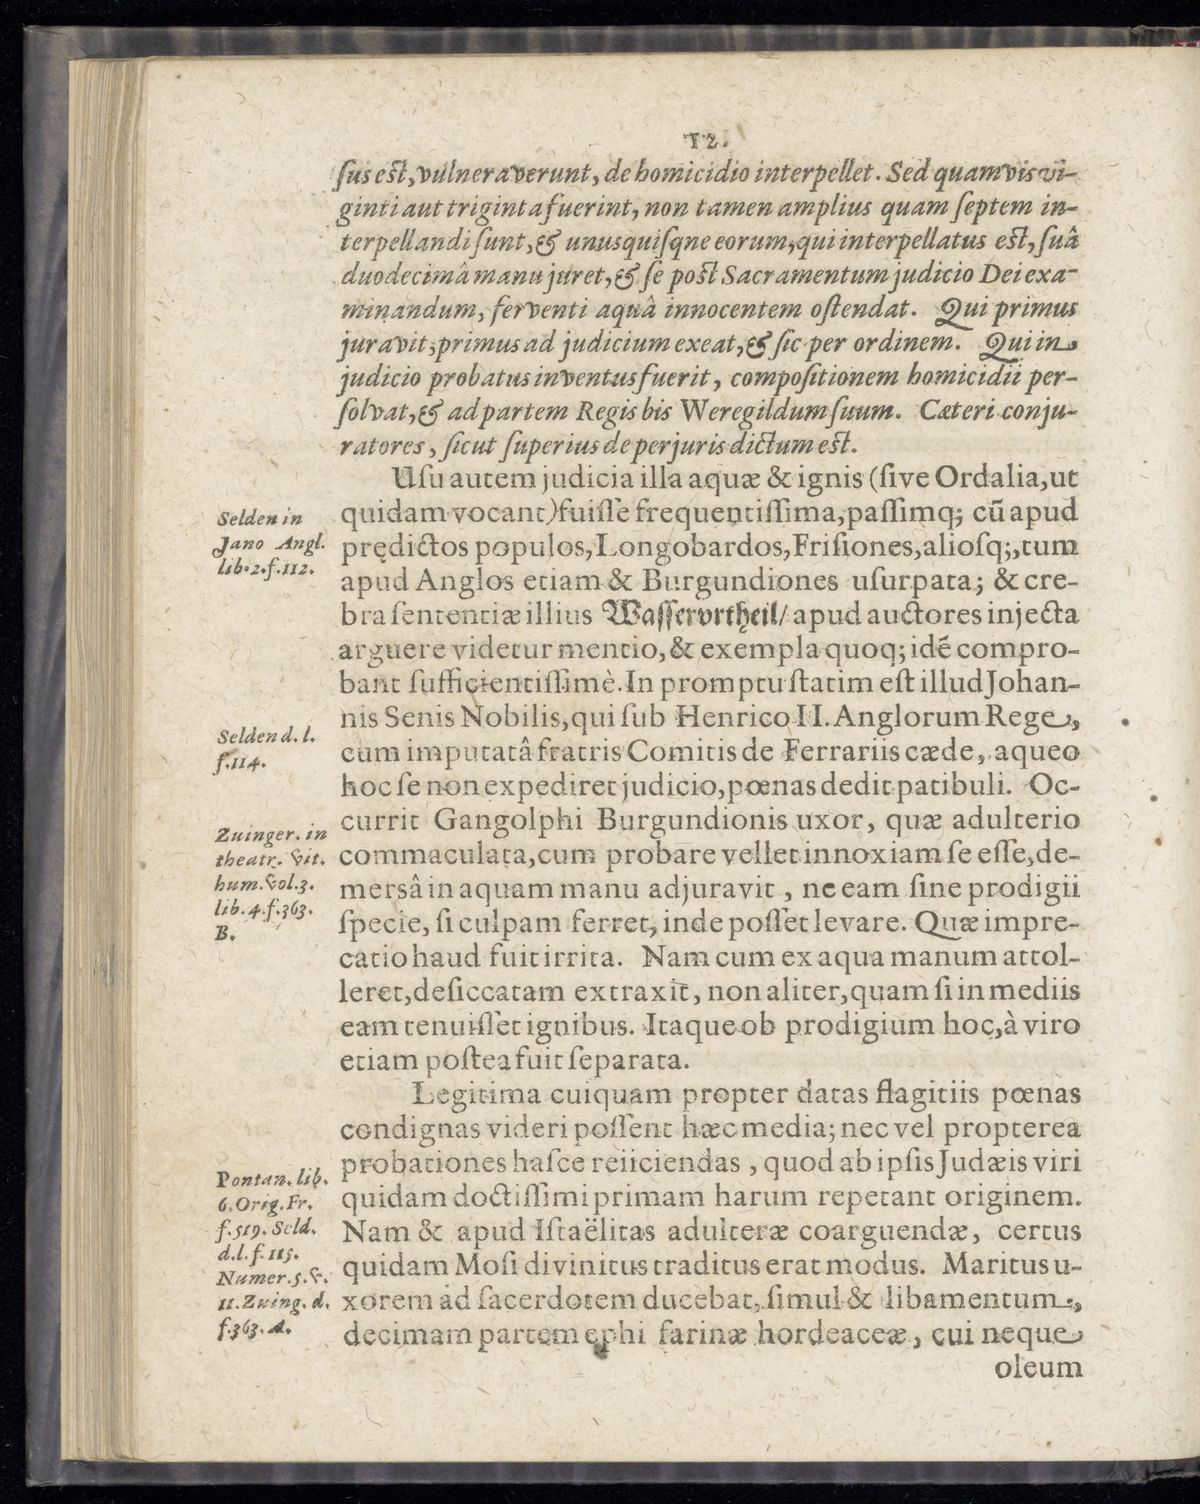 12.
ſus eſt, vulneraverunt, de homicidio interpellet. Sed quamvis vi-
ginti aut triginta fuerint, non tamen amplius quam ſeptem in-
terpellandi ſunt, & unusquiſqne eorum, qui interpellatus eſt, ſuâ
duodecimâ manu juret, & ſe poſt Sacramentum judicio Dei exa-
minandum, ferventi aquâ innocentem oſtendat. Qui primus
juravit, primus ad judicium exeat, & ſic per ordinem. Qui in
judicio probatus inventus fuerit, compoſitionem homicidii per-
ſolvat, & ad partem Regis bis Weregildum ſuum. Cæteri conju-
ratores, ſicut ſuperius de perjuris dictum eſt.
Uſu autem judicia illa aquæ & ignis (ſive Ordalia, ut
Selden in
Jano Angl.
lib. 2. f. 112.
quidam vocant) fuiſſe frequentiſſima, paſſimq; cū apud
prędictos populos, Longobardos, Friſiones, alioſq;, tum
apud Anglos etiam & Burgundiones uſurpata; & cre-
bra ſententiæ illius Waſſervrtheil/ apud auctores injecta
arguere videtur mentio, & exempla quoq; idē compro-
bant ſufficientiſſimè. In promptu ſtatim eſt illud Johan-
nis Senis Nobilis, qui ſub Henrico II. Anglorum Rege,
Selden d. l.
f. 114.
cum imputatâ fratris Comitis de Ferrariis cæde, aqueo
hoc ſe non expediret judicio, pœnas dedit patibuli. Oc-
currit Gangolphi Burgundionis uxor, quæ adulterio
Zuinger. in
theatr. vit.
hum. vol. 3.
lib. 4. f. 363.
B.
commaculata, cum probare vellet innoxiam ſe eſſe, de-
mersâ in aquam manu adjuravit, ne eam ſine prodigii
ſpecie, ſi culpam ferret, inde poſſet levare. Quæ impre-
catio haud fuit irrita. Nam cum ex aqua manum attol-
leret, deſiccatam extraxit, non aliter, quam ſi in mediis
eam tenuiſſet ignibus. Itaque ob prodigium hoc, à viro
etiam poſtea fuit ſeparata.
Legitima cuiquam propter datas flagitiis pœnas
condignas videri poſſent hæc media; nec vel propterea
probationes haſce reiiciendas, quod ab ipſis Judæis viri
Pontan. lib.
6. Orig. Fr.
f. 519. Seld.
d. l. f. 115.
Numer. 5. v.
11. Zuing. d.
f. 363. A.
quidam doctiſſimi primam harum repetant originem.
Nam & apud Iſtaëlitas adulteræ coarguendæ, certus
quidam Moſi divinitus traditus erat modus. Maritus u-
xorem ad ſacerdotem ducebat, ſimul & libamentum,
decimam partem ephi farinæ hordeaceæ, cui neque
oleum